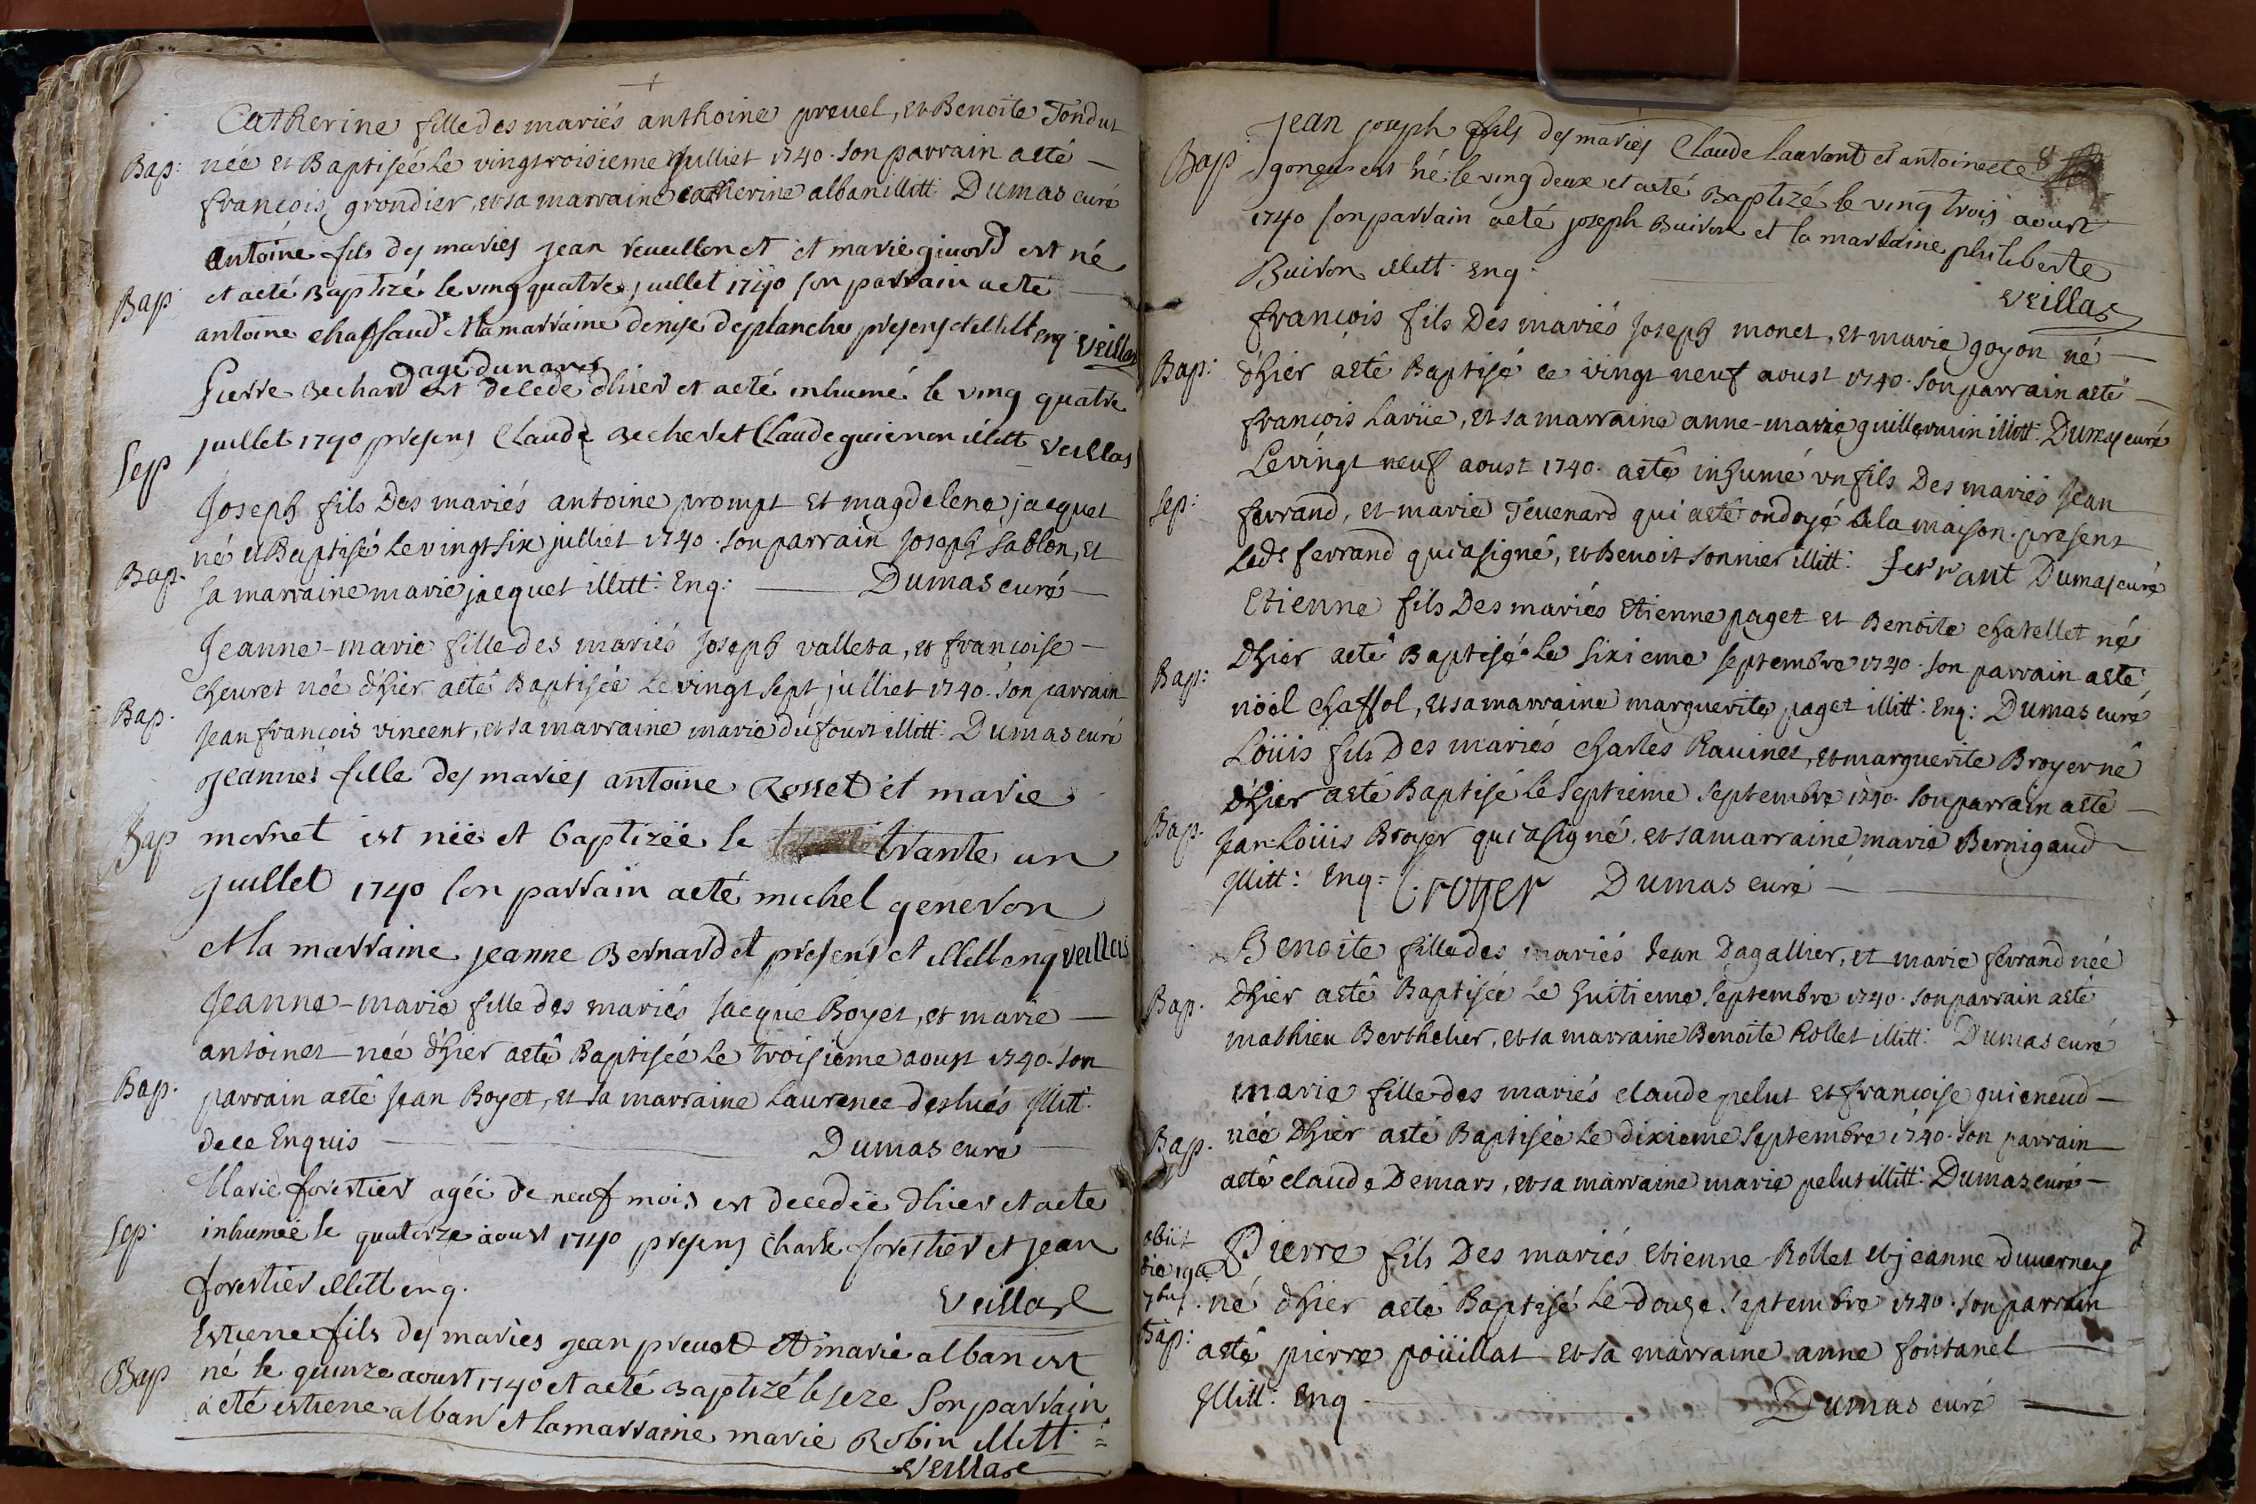 Catherine fille des mariés anthoine prevel, et Benoite Tondut
Bap: née et Baptisée Le vingtroisieme Julliet 1740. son parrain aeté
françois grondier, et sa marraine catherine alban illitt: Dumas curé
antoine fils des mariés jean reveillon et et marie givord est né
Bap et aeté Baptizé le ving quatre juillet 1740 son parrain aeté
antoine chassaud et la marraine denise desplanche presens et illitt enq Veillas
agé d'un ans
Pierre Bechard est decedé dhier et aeté inhumé le ving quatre
Sep juillet 1740 presens Claude Becheret Claude guienon illitt Veillas
Joseph fils Des mariés antoine prompt et magdelene jacquet
né et Baptisé Le vingt six julliet 1740. son parrain Joseph sablon, et
Bap. sa marraine marie jacquet illitt: Enq: Dumas curé
Jeanne-marie fille des mariés Joseph valleta, et françoise
cheuret née d'hier aeté Baptisée Le vingt sept julliet 1740. son parrain
Bap. Jean françois vincent, et sa marraine marie dufour illitt: Dumas curé
Jeanne fille des mariés antoine Rosset et marie
Bap mornet est née et baptizée le trante un
juillet 1740 son parrain aeté michel generon
et la marraine jeanne Bernardet presens et illitt enq Veillas
Jeanne-marie fille des mariés Jacque Boyet, et marie
antoinet née d'hier aeté Baptisée Le troisieme aoust 1740. son
Bap. parrain aeté Jean Boyet, et sa marraine Laurence desbués Jllitt:
de ce Enquis Dumas curé
Marie forestier agée de neuf mois est decedée dhier et aeté
Sep: inhumée le quatorze aoust 1740 presens Charle forestier et jean
forestier illitt enq. Veillas
Estiene fils des mariés jean prevot et marie alban est
Bap né le quinze aoust 1740 et aeté Baptizé le seze son parrain
a eté estiene alban et la marraine marie Robin illitt:
Veillas
Jean joseph fils des mariés Claude laurant et antoinette 8
Bap gonçu est né le ving deux et aeté Baptizé le ving trois aoust
1740 son parrain aeté joseph Buiron et la marraine philiberte
Buiron illitt. enq. Veillas
françois fils Des mariés Joseph monet, et marie goyon né
Bap: d'hier aeté Baptisé ce vingt neuf aoust 1740. son parrain aeté
françois Laviie, et sa marraine anne-marie guillermin illitt: Dumas curé
Le vingt neuf aoust 1740. aeté inhumé un fils Des mariés Jean
Sep: ferrand, et marie Tevenard qui aeté ondoyé à la maison. présent
Ledt ferrand qui a signé, et Benoit sonnier illitt: Ferrant Dumas curé
Etienne fils Des mariés Etienne paget et Benoite chatellet né
Bap: d'hier aeté Baptisé Le sixieme septembre 1740. son parrain aeté
nöel chaffol, et sa marraine marguerite paget illitt: Enq: Dumas curé
Loüis fils Des mariés charles Ravinet, et marguerite Broyer né
d'hier aeté Baptisé Le septieme septembre 1740. son parrain aeté
Bap. Jean-Loüis Broyer qui a signé. et sa marraine marie Bernigaud
Jllitt: Enq: Broyer Dumas curé
Benoite fille des mariés Jean Dagallier, et marie ferrand née
Bap. d'hier aeté Baptisée Le huitieme septembre 1740. son parrain aeté
mathieu Berthelier, et sa marraine Benoite Rollet illitt: Dumas curé
marie fille des mariés claude pelut et françoise guieneud
Bap. née d'hier aeté Baptisée Le dixieme septembre 1740. son parrain
aeté claude Demars, et sa marraine marie pelut illitt: Dumas curé
obiit
die 19a
7bris
Pierre fils Des mariés Etienne Rollet et jeanne duverney
né d'hier aeté Baptisé Le douze septembre 1740. son parrain
Bap: aeté pierre poüillat et sa marraine anne fontanel
Jllitt: Enq Dumas curé